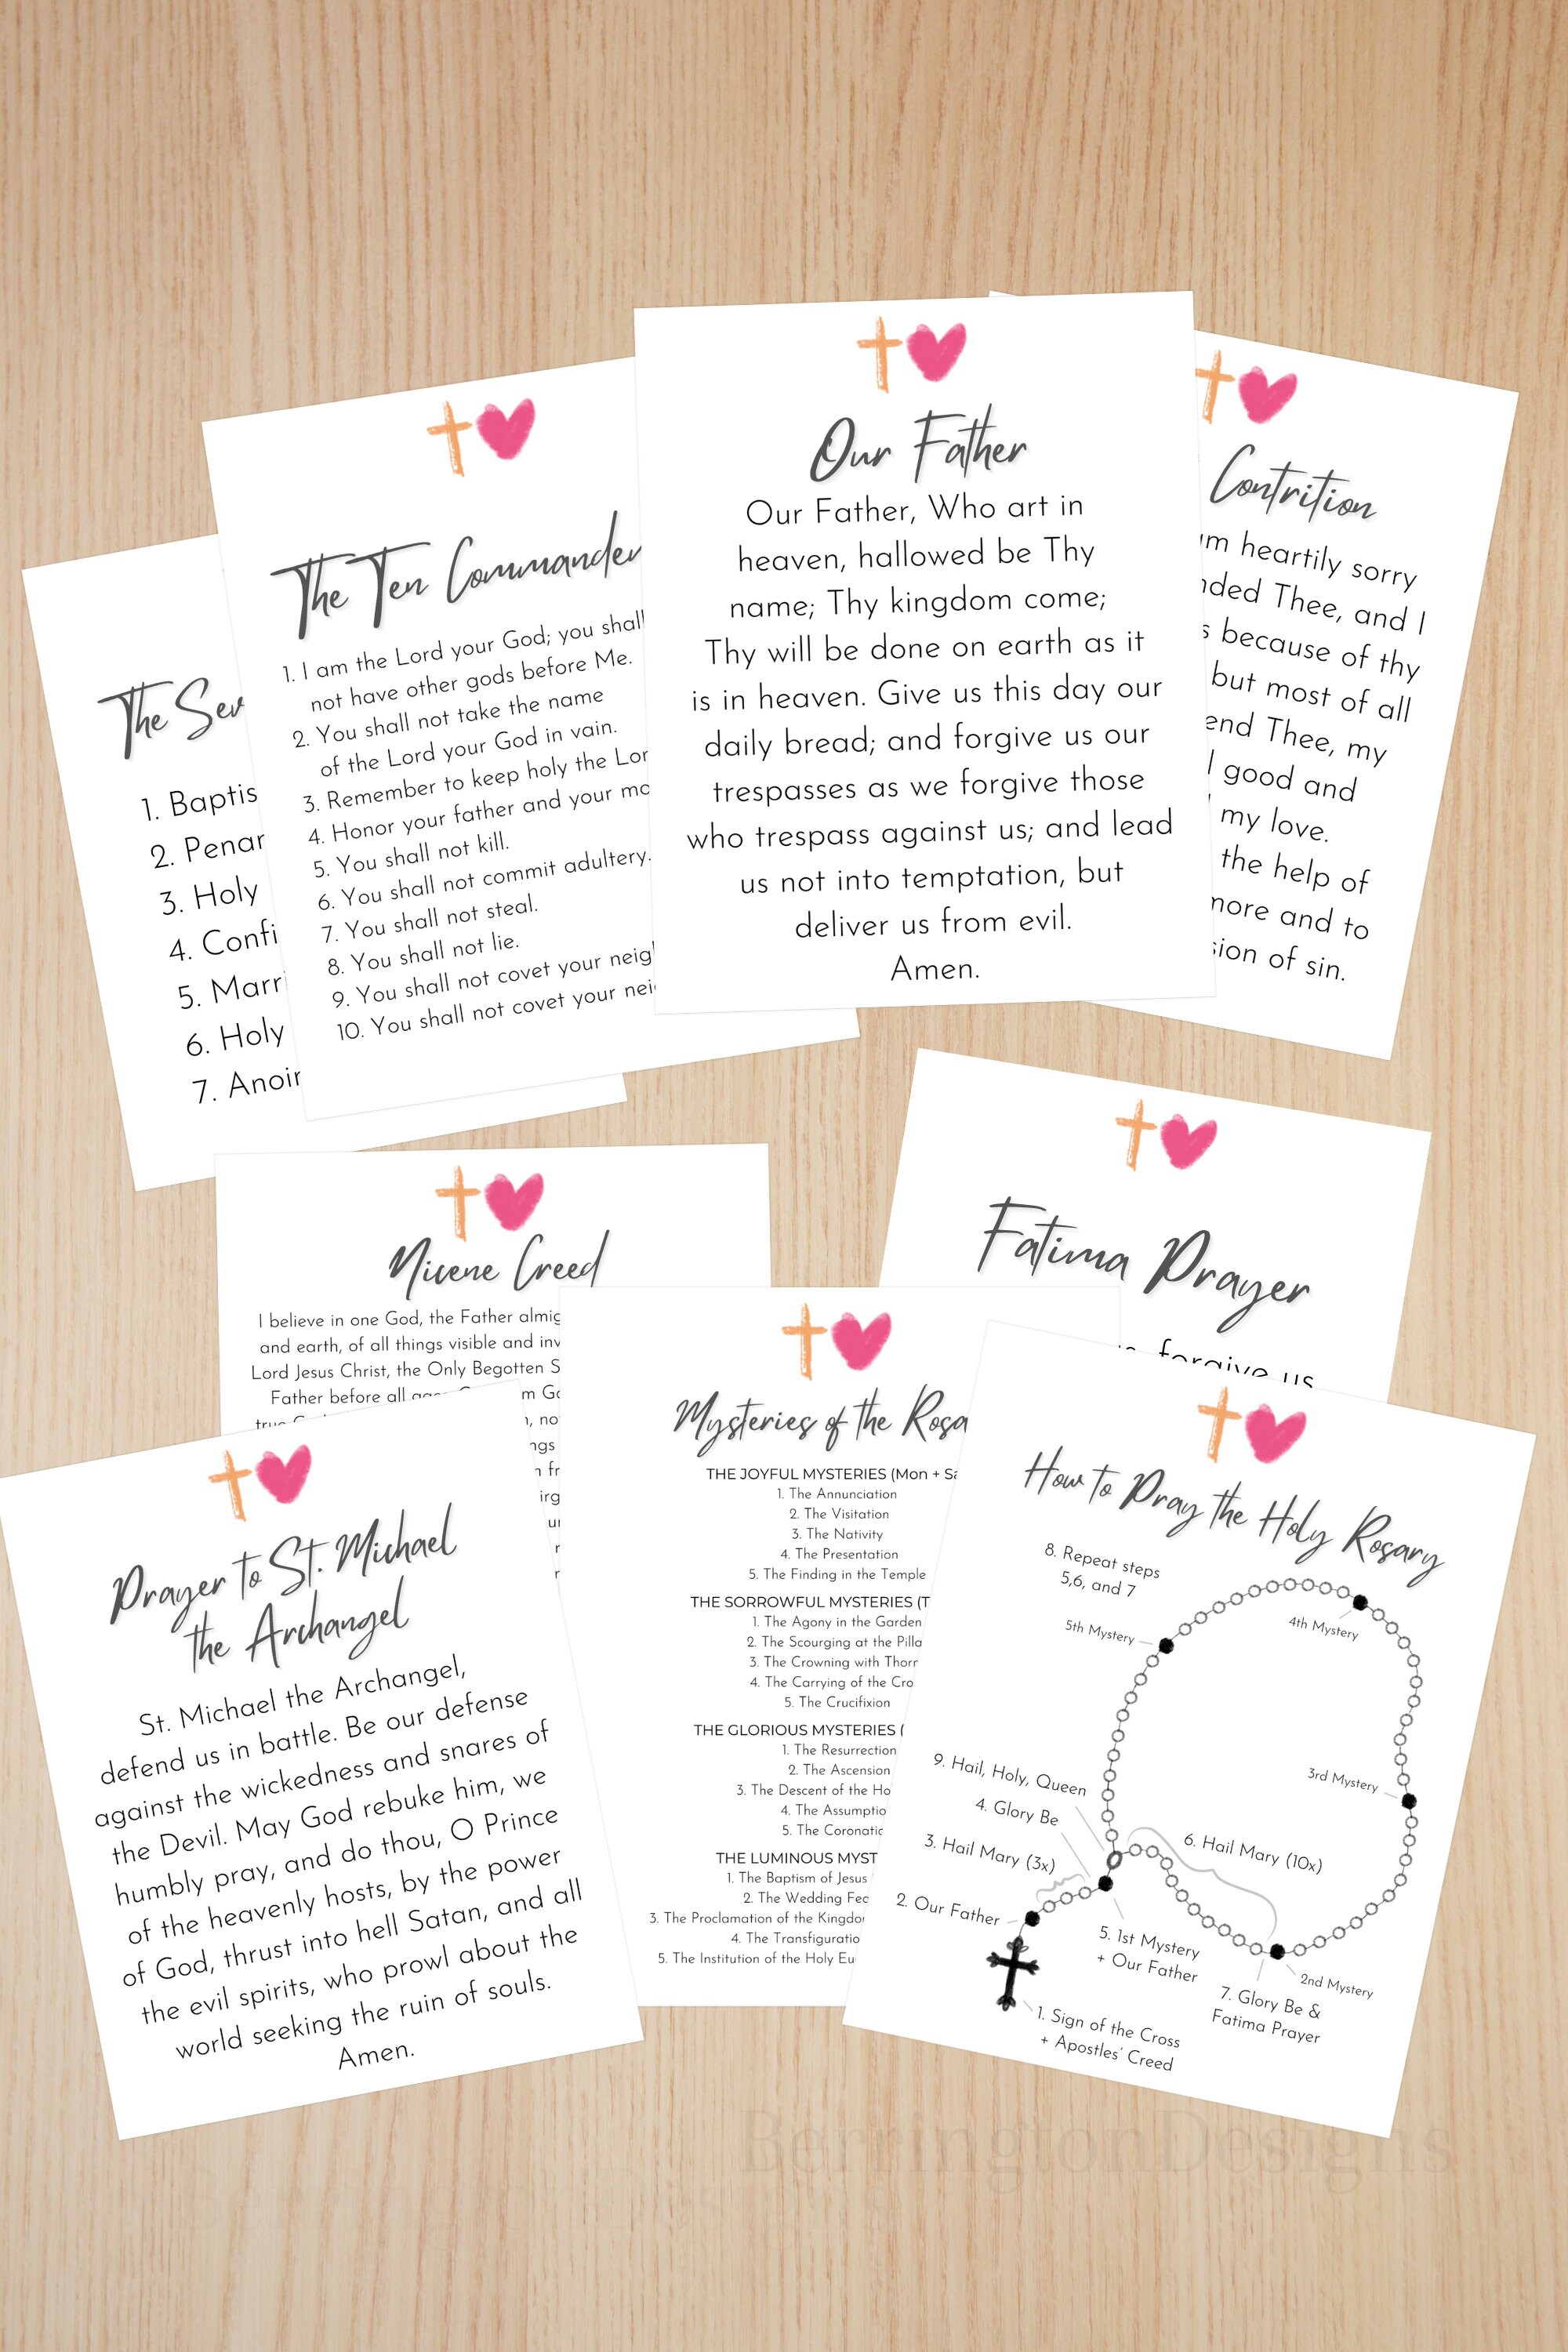 The
1.
2.
3. Holy
4.
5.
6. Holy
7.
The Ten
1. I am the Lord your God; you shall
not have other gods before Me.
2. You shall not take the name
of the Lord your God in vain.
3. Remember to keep holy the
4. Honor your father and your
5. You shall not kill.
6. You shall not commit adultery.
7. You shall not steal.
8. You shall not lie.
9. You shall not covet your
10. You shall not covet your
Our Father
Our Father, Who art in
heaven, hallowed be Thy
name; Thy kingdom come;
Thy will be done on earth as it
is in heaven. Give us this day our
daily bread; and forgive us our
trespasses as we forgive those
who trespass against us; and lead
us not into temptation, but
deliver us from evil.
Amen.
Contrition
heartily sorry
Thee, and I
because of thy
but most of all
Thee, my
good and
my love.
the help of
more and to
of sin.
Nicene Creed
I believe in one God, the Father
and earth, of all things visible and
Lord Jesus Christ, the Only Begotten
Father before all
Fatima Prayer
forgive us
Prayer to St. Michael
the Archangel
St. Michael the Archangel,
defend us in battle. Be our defense
against the wickedness and snares of
the Devil. May God rebuke him, we
humbly pray, and do thou, O Prince
of the heavenly hosts, by the power
of God, thrust into hell Satan, and all
the evil spirits, who prowl about the
world seeking the ruin of souls.
Amen.
Mysteries of the
THE JOYFUL MYSTERIES (Mon +
1. The Annunciation
2. The Visitation
3. The Nativity
4. The Presentation
5. The Finding in the Temple
THE SORROWFUL MYSTERIES
1. The Agony in the Garden
2. The Scourging at the
3. The Crowning with
4. The Carrying of the
5. The Crucifixion
THE GLORIOUS MYSTERIES
1. The Resurrection
2. The Ascension
3. The Descent of the
4. The
5. The
THE LUMINOUS
1. The Baptism of Jesus
2. The Wedding
3. The Proclamation of the
4. The
5. The Institution of the Holy
How to Pray the Holy Rosary
8. Repeat steps
5,6, and 7
4th Mystery
5th Mystery
3rd Mystery
9. Hail, Holy, Queen
4. Glory Be
3. Hail Mary (3x)
6. Hail Mary (10x)
2. Our Father
5. 1st Mystery
+ Our Father
2nd Mystery
7. Glory Be &
Fatima Prayer
1. Sign of the Cross
+ Apostles' Creed
BerringtonDesigns